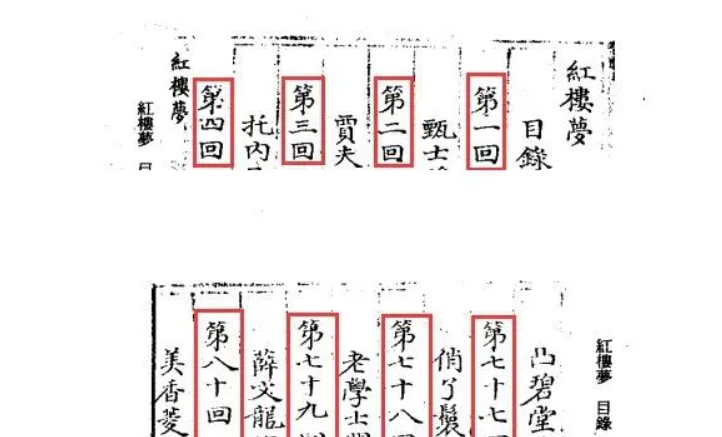 紅樓夢
目錄
第一回
甄士
第二回
賈夫
第三回
托內
第四回
紅樓夢
紅樓夢 目
凸碧堂
第七十七回
俏丫鬟
第七十八回
老學士
第七十九
薛文龍
第八十回
美香菱
紅樓夢 目錄